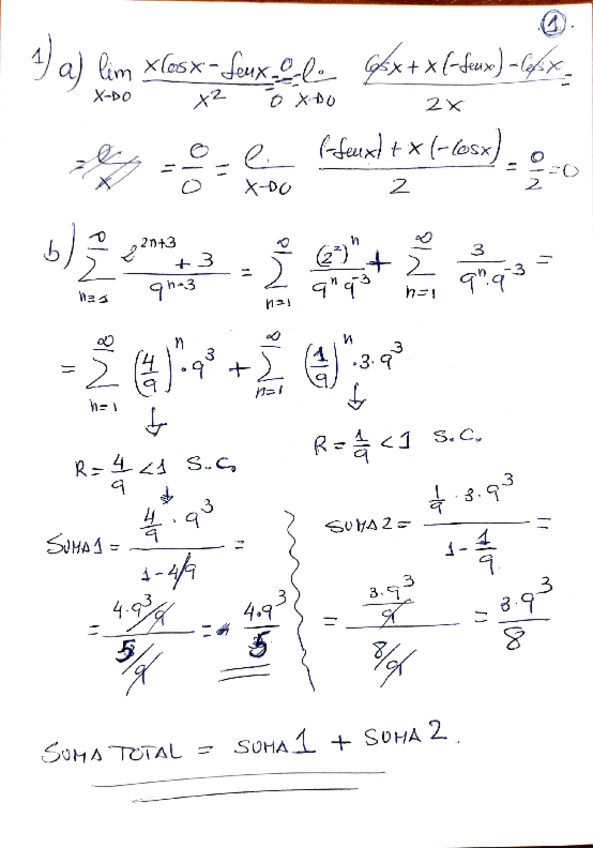 ①.
1) a) lim x→0 (x cos x - sen x)/x² = 0/0 = l. x→0 (cos x + x(-sen x) - cos x)/2x =
= 0/0 = l. x→0 ((-sen x) + x(-cos x))/2 = 0/2 = 0
b) ∑ n=1 ∞ (2^(2n+3) + 3)/9^(n-3) = ∑ n=1 ∞ (2²)ⁿ/(9ⁿ 9⁻³) + ∑ n=1 ∞ 3/(9ⁿ·9⁻³) =
= ∑ n=1 ∞ (4/9)ⁿ · 9³ + ∑ n=1 ∞ (1/9)ⁿ · 3 · 9³
↓ ↓
R = 4/9 < 1 S.C. R = 1/9 < 1 S.C.
↓
SUMA 1 = (4/9 · 9³)/(1 - 4/9) = SUMA 2 = (1/9 · 3 · 9³)/(1 - 1/9) =
= (4·9³/9)/(5/9) = 4·9³/5 = (3·9³/9)/(8/9) = 3·9³/8
SUMA TOTAL = SUMA 1 + SUMA 2.